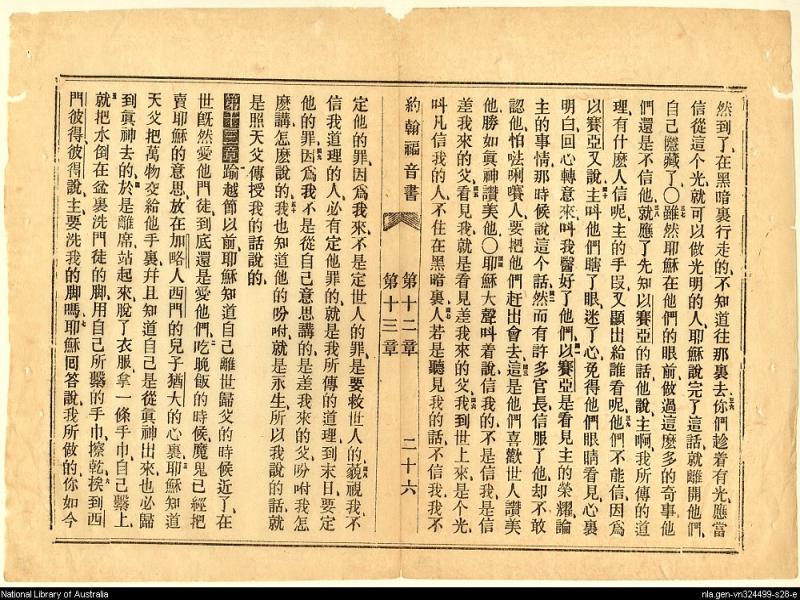 然到了、在黑暗裏行走的、不知道往那裏去、你們趁着有光、應當
信從這個光、就可以做光明的人、耶穌說完了這話、就離開他們、
自己隱藏了〇雖然耶穌在他們的眼前、做過這麽多的奇事、他
們還是不信他、就應了先知以賽亞的話、他說、主啊、我所傳的道
理、有什麽人信呢、主的手段又顯出給誰看呢、他們不能信、因爲
以賽亞又說、主叫他們瞎了眼、迷了心、免得他們眼睛看見、心裏
明白、回心轉意來、叫我醫好了他們、以賽亞是看見主的榮耀、論
主的事情、那時候說這個話、然而有許多官長、信服了他、却不敢
認他、怕𠵽唎賽人、要把他們赶出會去、這是他們喜歡世人讚美
他、勝如眞神讚美他〇耶穌大聲呌着說、信我的、不是信我、是信
差我來的父、看見我、就是看見差我來的父、我到世上來、是个光、
呌凡信我的人、不住在黑暗裏、人若是聽見我的話、不信我、我不
約翰福音書 第十二章 第十三章 二十六
定他的罪、因爲我來、不是定世人的罪、是要救世人的、藐視我不
信我道理的人、必有定他罪的、就是我所傳的道理、到末日要定
他的罪、因爲我不是從自己意思講的、是差我來的父、吩咐我怎
麽講、怎麽說的、我也知道他的吩咐、就是永生、所以我說的話、就
是照天父傳授我的話說的、
第十三章踰越節以前、耶穌知道自己離世歸父的時候近了、在
世旣然愛他門徒、到底還是愛他們、吃晚飯的時候、魔鬼已經把
賣耶穌的意思、放在加略人西門的兒子猶大的心裏、耶穌知道
天父把萬物交給他手裏、幷且知道自己是從眞神出來、也必歸
到眞神去的、於是離席站起來、脫了衣服、拿一條手巾、自己繫上、
就把水倒在盆裏、洗門徒的脚、用自己所繫的手巾、擦乾、挨到西
門彼得、彼得說、主要洗我的脚嗎、耶穌回答說、我所做的、你如今
National Library of Australia
nla.gen-vn324499-s28-e